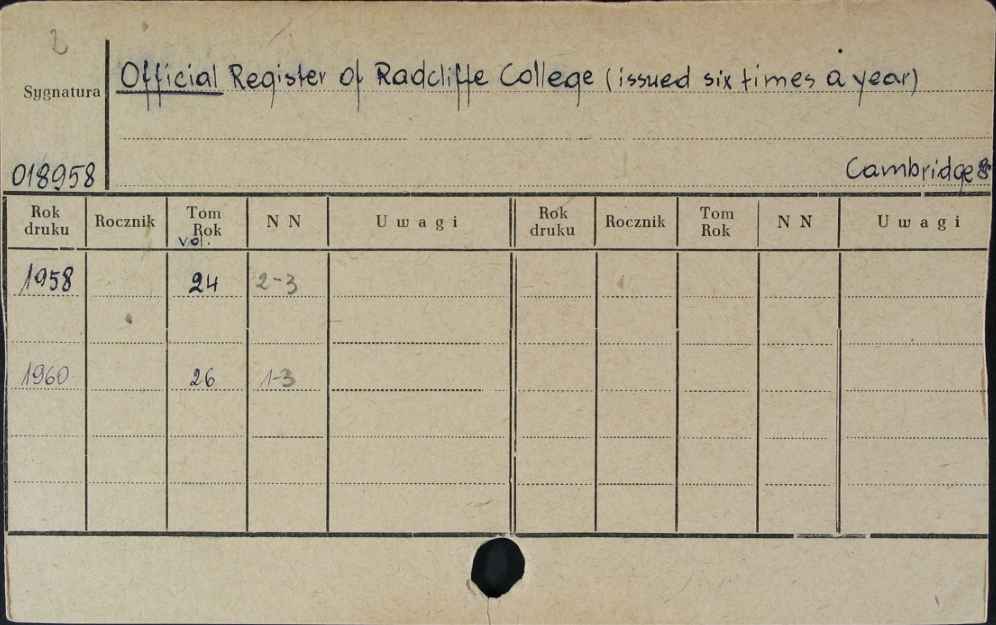 2
Official Register of Radcliffe College (issued six times a year)
Sygnatura
018958
Cambridge
Rok druku Rocznik Tom Rok N N Uwagi Rok druku Rocznik Tom Rok N N Uwagi
vol.
1958 24 2-3
1960 26 1-3